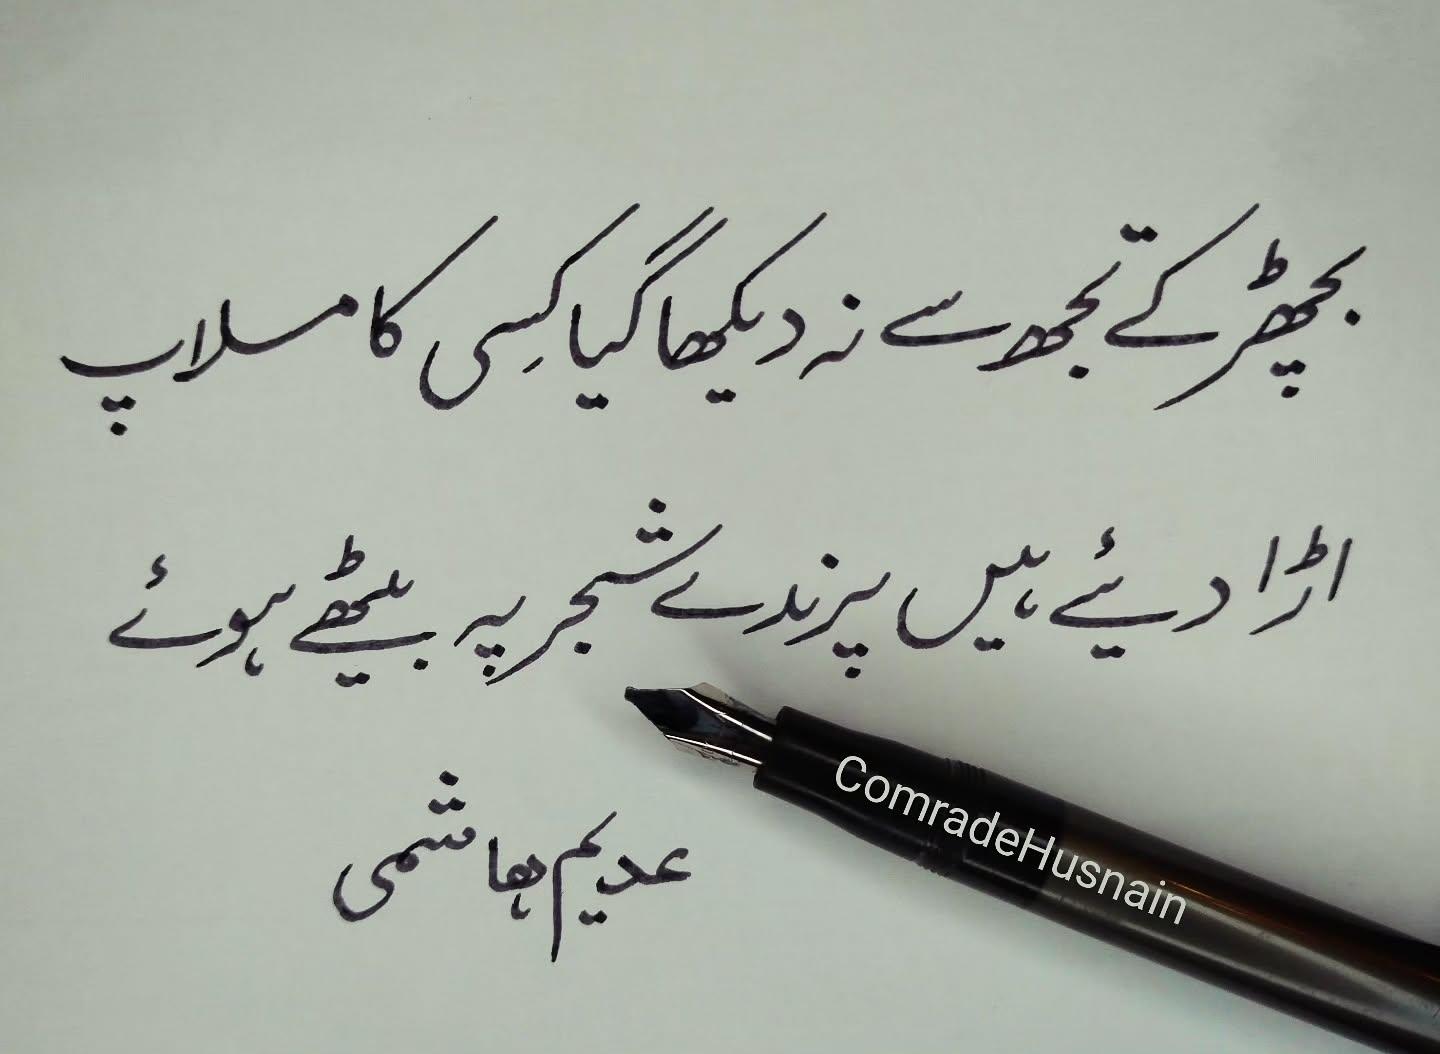 بچھڑ کے تجھ سے نہ دیکھا گیا کِسی کا ملاپ
اڑا دیئے ہیں پرندے شجر پہ بیٹھے ہوئے
عدیم ہاشمی
ComradeHusnain